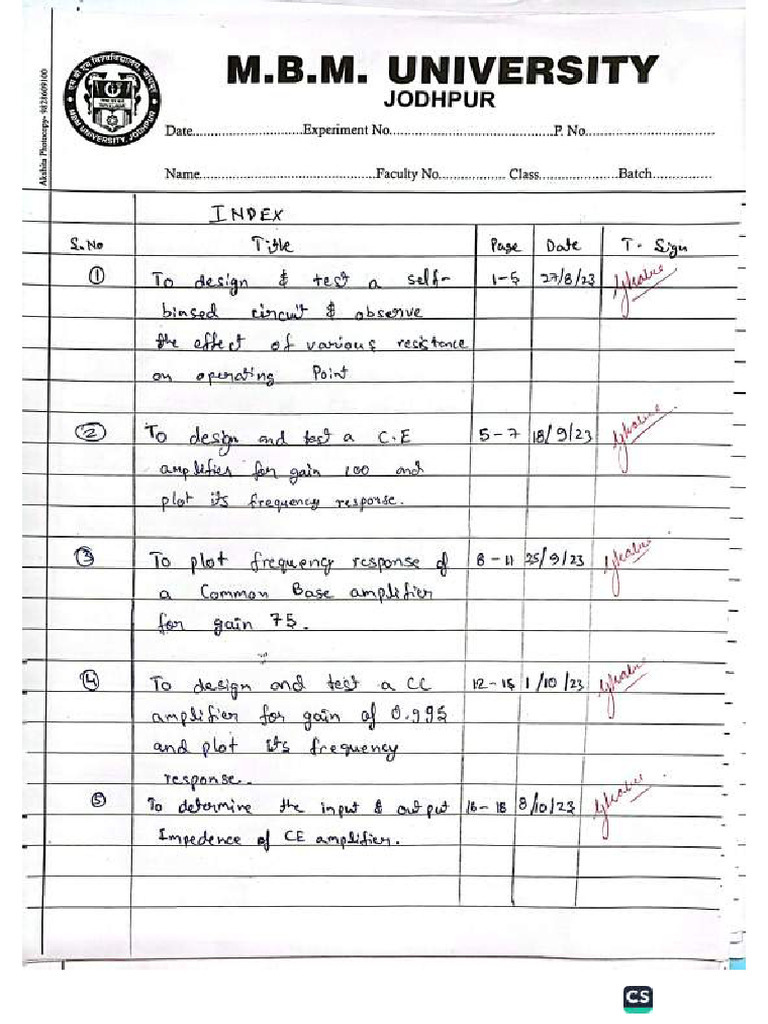 M.B.M. UNIVERSITY
JODHPUR
Date..............................Experiment No.............................................P. No...................................
Name...............................................Faculty No.................. Class.....................Batch.......................
Akshita Photocopy- 9828609100
MBM UNIVERSITY, JODHPUR
INDEX
S.No Title Page Date T. Sign
1 To design & test a self- 1-5 27/8/23
biased circuit & observe
the effect of various resistence
on operating Point
2 To design and test a C.E 5-7 18/9/23
amplifier for gain 100 and
plot its frequency response.
3 To plot frequency response of 8-11 25/9/23
a Common Base amplifier
for gain 75.
4 To design and test a CC 12-15 1/10/23
amplifier for gain of 0.995
and plot its frequency
response.
5 To determine the input & output 16-18 8/10/23
Impedence of CE amplifier.
CS